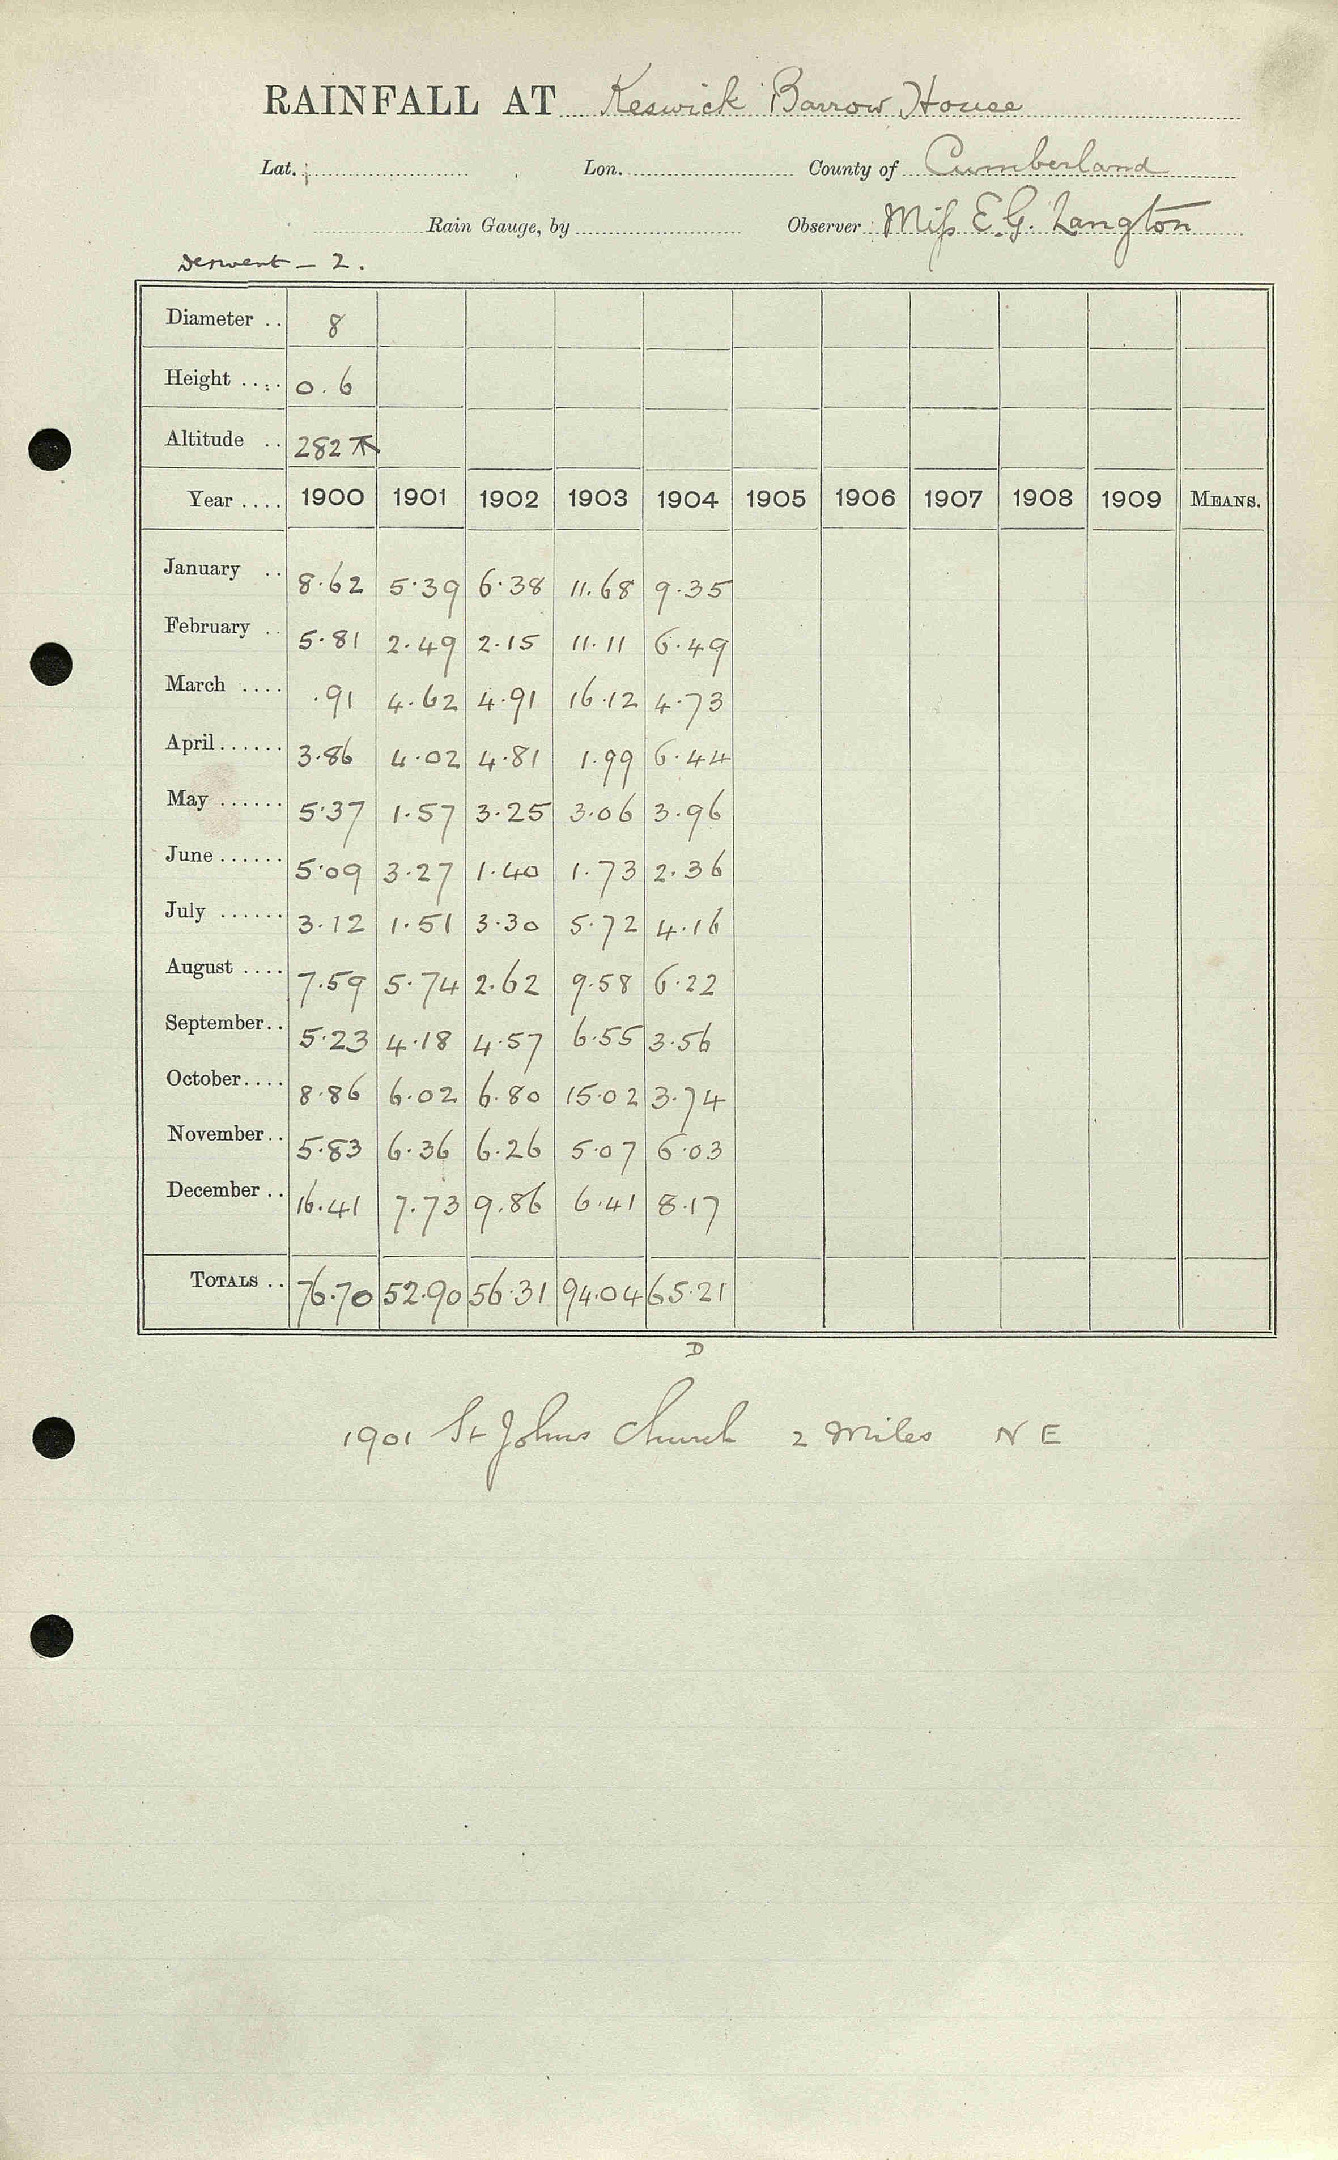 RAINFALL AT Keswick Barrow House
Lat. Lon. County of Cumberland
Rain Gauge, by Observer Miss E.G. Langton
Derwent - 2.
Diameter .. 8
Height .... 0.6
Altitude .. 282 T
Year .... 1900 1901 1902 1903 1904 1905 1906 1907 1908 1909 MEANS.
January .. 8.62 5.39 6.38 11.68 9.35
February .. 5.81 2.49 2.15 11.11 6.49
March .... .91 4.62 4.91 16.12 4.73
April ...... 3.86 4.02 4.81 1.99 6.44
May ...... 5.37 1.57 3.25 3.06 3.96
June ...... 5.09 3.27 1.40 1.73 2.36
July ...... 3.12 1.51 3.30 5.72 4.16
August .... 7.59 5.74 2.62 9.58 6.22
September.. 5.23 4.18 4.57 6.55 3.56
October.... 8.86 6.02 6.80 15.02 3.74
November.. 5.83 6.36 6.26 5.07 6.03
December .. 16.41 7.73 9.86 6.41 8.17
TOTALS .. 76.70 52.90 56.31 94.04 65.21
D
1901 St Johns Church 2 Miles N E